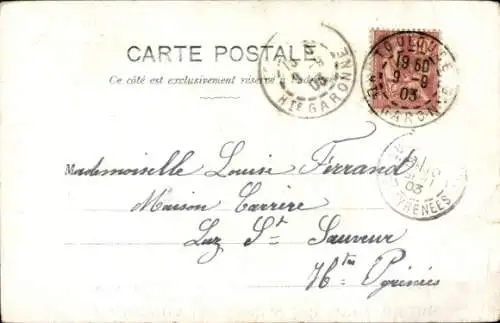 CARTE POSTALE
Ce côté est exclusivement réservé à l'adresse
TOULOUSE
19 50
9 - 8
03
HTE GARONNE
HTE GARONNE
03
PYRENEES
Mademoiselle Louise Ferrand
Maison Carrère
Luz St Sauveur
Htes Pyrénées